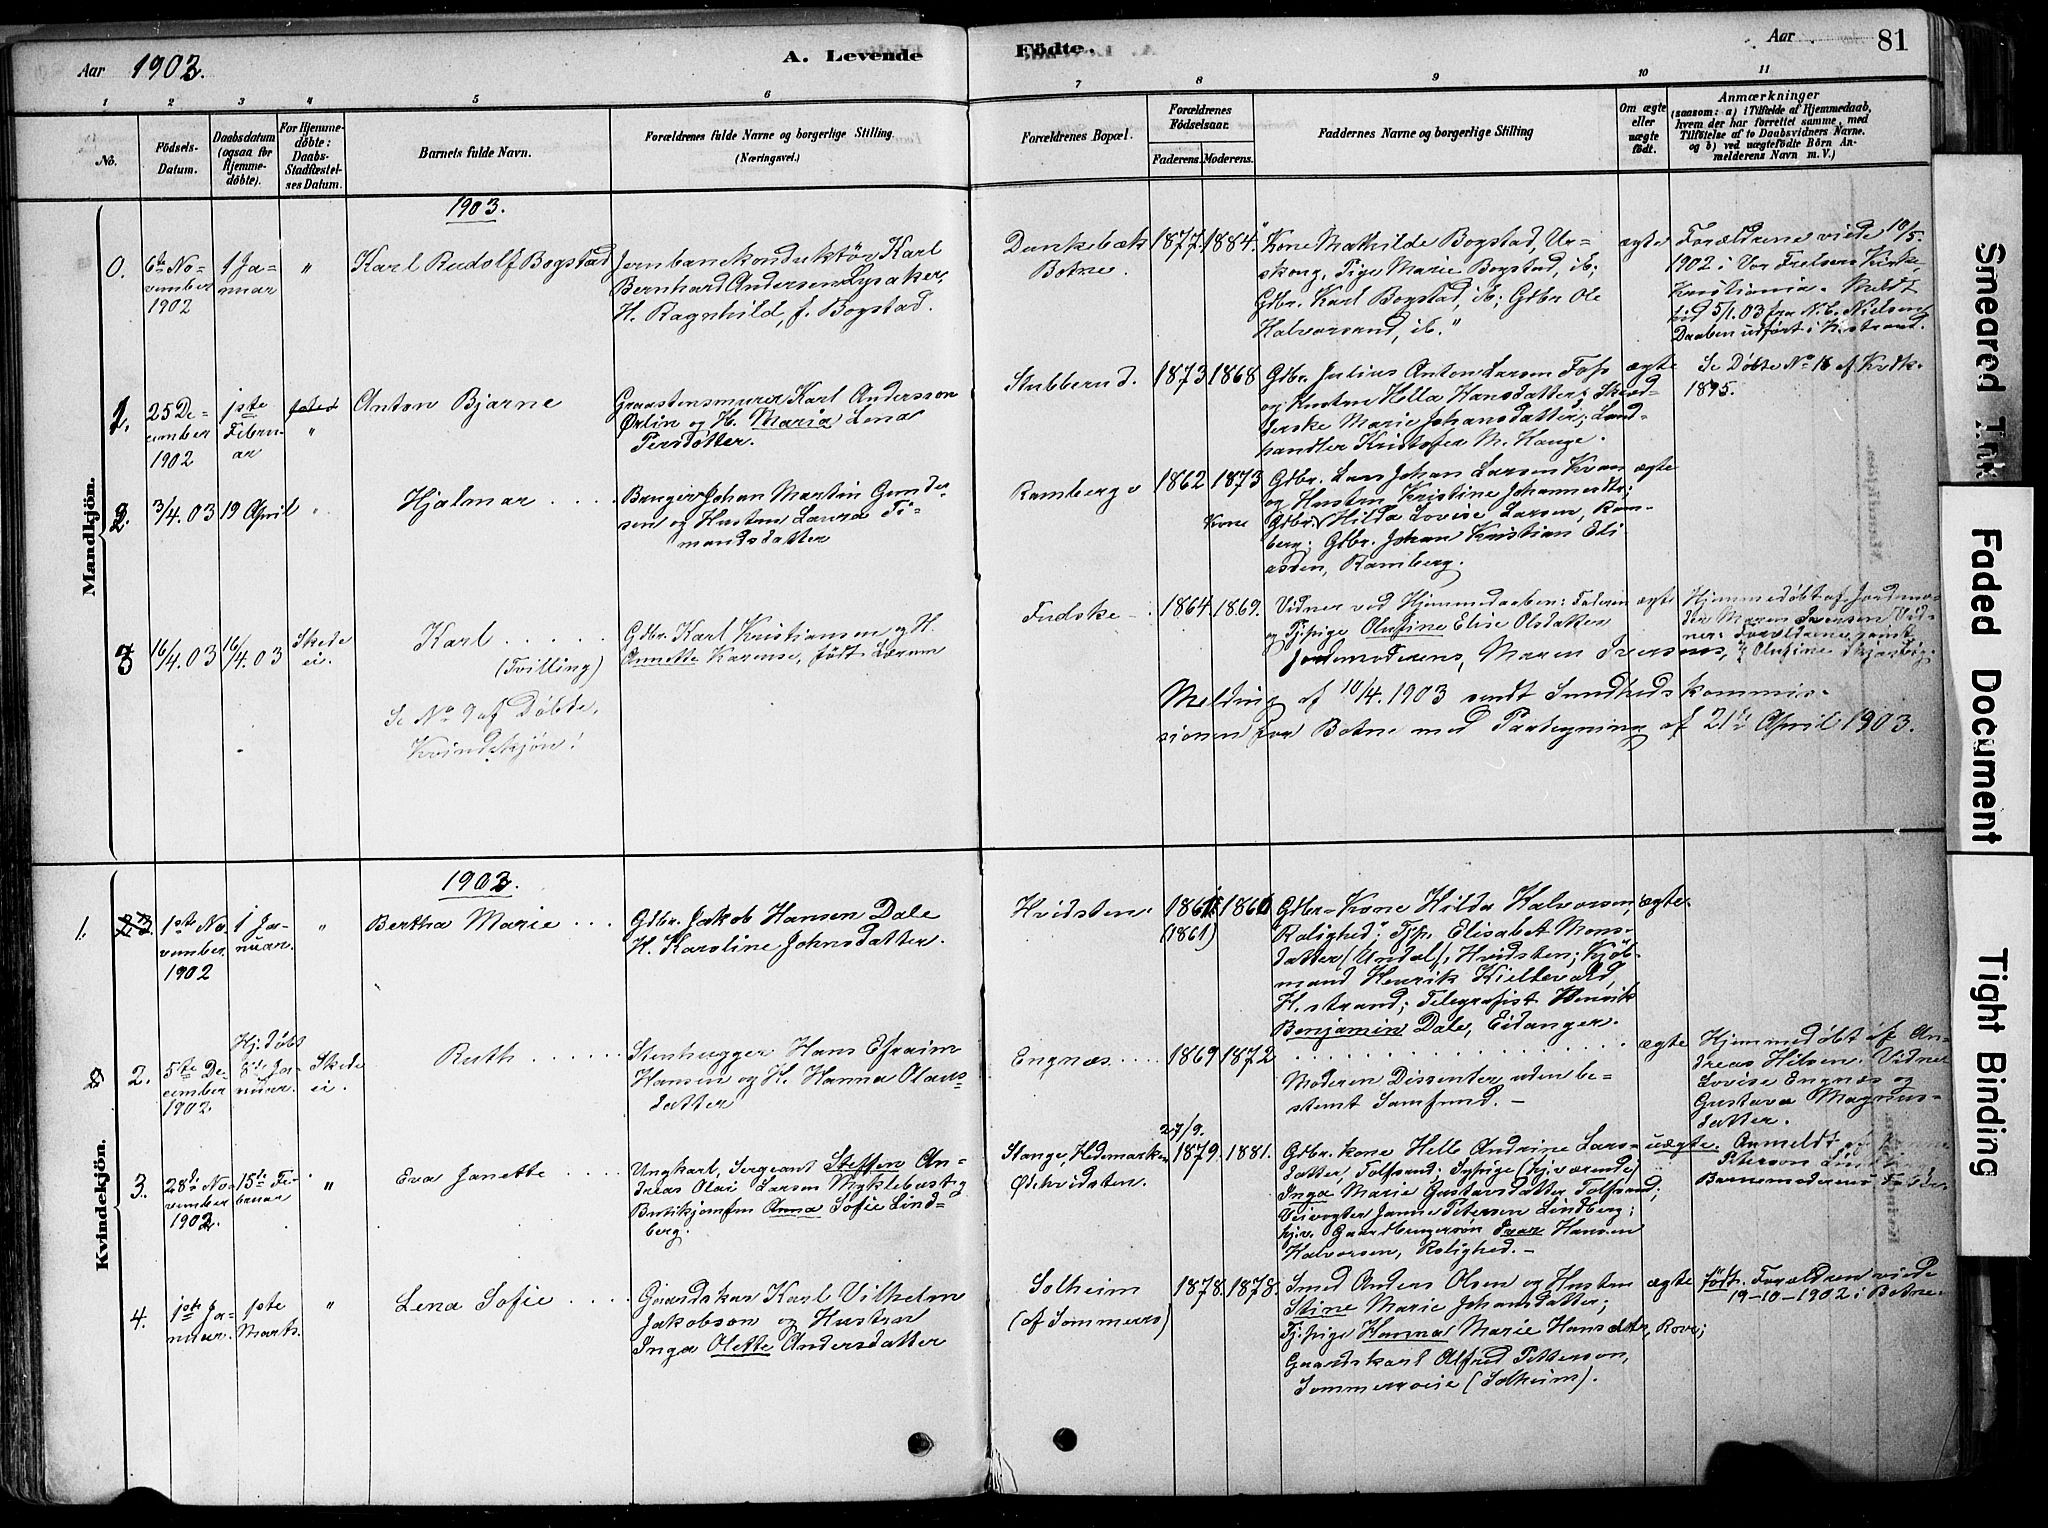 Aar 1903.
A. Levende Födte.
Aar 81
1 2 3 4 5 6 7 8 9 10 11
No.
Födsels-Datum.
Daabsdatum (ogsaa för Hjemme-döbte).
For Hjemme-döbte: Daabs-Stadfæstel-ses Datum.
Barnets fulde Navn.
Forældrenes fulde Navne og borgerlige Stilling.
(Næringsvei.)
Forældrenes Bopæl.
Forældrenes Födselsaar.
Faderens. Moderens.
Faddernes Navne og borgerlige Stilling
Om ægte eller uægte födt.
Anmærkninger
(saasom: a) i Tilfælde af Hjemmedaab,
hvem der har forrettet samme, med
Tilföielse af to Daabsvidners Navne.
og b) ved uægtefödte Börn An-
melderens Navn m. V.)
Mandkjön.
1903.
0.
6te No-
vember
1902
1 Ja-
nuar
"
Karl Rudolf Bogstad
Jernbanekonduktör Karl
Bernhard Andersen Lysaker,
H. Ragnhild, f. Bogstad.
Dunkebæk
Botne.
1877. 1884.
"Kone Mathilde Bogstad, Ur-
skoug, Pige Marie Bogstad, ib;
Gdbr. Karl Bogstad, ib; Gdbr Ole
Halvorsand, ib."
ægte
Forældrene viede 10/5.
1902 i Vor Frelsers Kirke,
Kristiania. Meldt
hid 5/1.03 fra N. C. Nielsen
Daaben udført i H.strand.
1.
25 De-
cember
1902
1ste
Febru-
ar
"
Anton Bjarne
Graastensmurer Karl Andersson
Örlin og H. Maria Lena
Persdotter.
Stubberud.
1873 1868
Gdbr. Julius Anton Larsen Fos
og Hustru Hella Hansdatter; Skræd-
derske Marie Johansdatter; Land-
handler Kristofer M. Hauge.
ægte
Se Døbte No 16 af Kvdk.
1895.
2.
3/4.03
19 April
"
Hjalmar
Bruger Johan Martin Gunder-
sen og Hustru Laura Ti-
mandsdatter
Ramberg v
1862 1873
Kone
Gdbr. Lars Johan Larsen Kvan
og Hustru Kristine Johannesdtr;
Gdbr. Hilda Lovise Larsen, Ram-
berg; Gdbr. Johan Kristian Eli-
assen, Ramberg.
ægte
3
16/4.03
16/4.03
Skede
ei.
Karl
(Tvilling)
Se No 9 af Döbte,
Kvindekjön!
Gdbr. Karl Kristiansen og H.
Annette Karense, født Lærum
Fudske
1864. 1869.
Vidner ved Hjemmedaaben: Faderen
og Tj.pige Olufine Elise Olsdatter
Jordemoderens, Maren Iversens,
ægte
Hjemmedøbt af Jordemo-
der Maren Iversen Vid-
ner: Forældrene samt
Olufine
Melding af 10/4.1903 sendt Sundhedskommis-
sionen for Botne med Paategning af 21de April 1903.
Kvindekjön.
1903.
1.
1ste No-
vember.
1902
1 Ja-
nuar.
"
Bertha Marie
Gdbr. Jakob Hansen Dale
H. Karoline Johnsdatter.
Hvidsten.
1861 1860
(1861)
Gdbr-Kone Hilda Halvorsen,
"Rolighed"; Tjp. Elisabet Mons-
datter (Undal), Hvidsten; Kjöb-
mand Henrik Kjeltevald,
H.strand; Telegrafist Henrik
Benjamin Dale, Eidanger.
ægte.
2.
5te De-
cember
1902
Hj.döbt
Ja-
nuar.
Skede
ei.
Ruth
Stenhugger Hans Efraim
Hansen og H. Hanna Olaus-
datter
Engnæs
1869 1872
Moderen Dissenter uden be-
stemt Samfund.
ægte
Hjemmedøbt af An-
dreas Hilsen. Vidner
Lovise Engnæs og
Gustava Magnus-
datter.
3.
28de No-
vember
1902.
15de Fe-
bruar
"
Eva Janette
Ungkarl, Sergeant Steffen An-
dreas Olai Larsen Myklebust og
Butikjomfru Anna Sofie Lind-
berg.
Stange, Hedemarken
Ødehvidsten.
27/9.
1879. 1881.
Gdbr. kone Helle Andrine Lars-
datter, Tolfsrud; Sypige (hjv.ærende)
Inga Marie Gustavsdatter Tolfsrud;
Veivogter Janne Petersen Lindberg;
hjv. Gaardbrugersön Ivar Hansen
Halvorsen, Rolighed.
uægte.
Anmeldt af
Peterson
Barnemoderens Fader
4.
1ste Ja-
nuar.
1ste
Marts.
"
Lena Sofie
Gaardskar Karl Vilhelm
Jakobson og Hustru
Inga Olette Andersdatter
Solheim
(af Sommerro)
1878. 1878.
Smed Anders Olsen og Hustru
Stine Marie Johansdatter;
Tj.pige Hanna Marie Hansdtr, Rove;
Gaardskarl Alfred Petterson,
Sommerroeie (Solheim).
ægte
født. Forældren viede
19-10-1902 i Botne.
Smeared Ink
Faded Document
Tight Binding